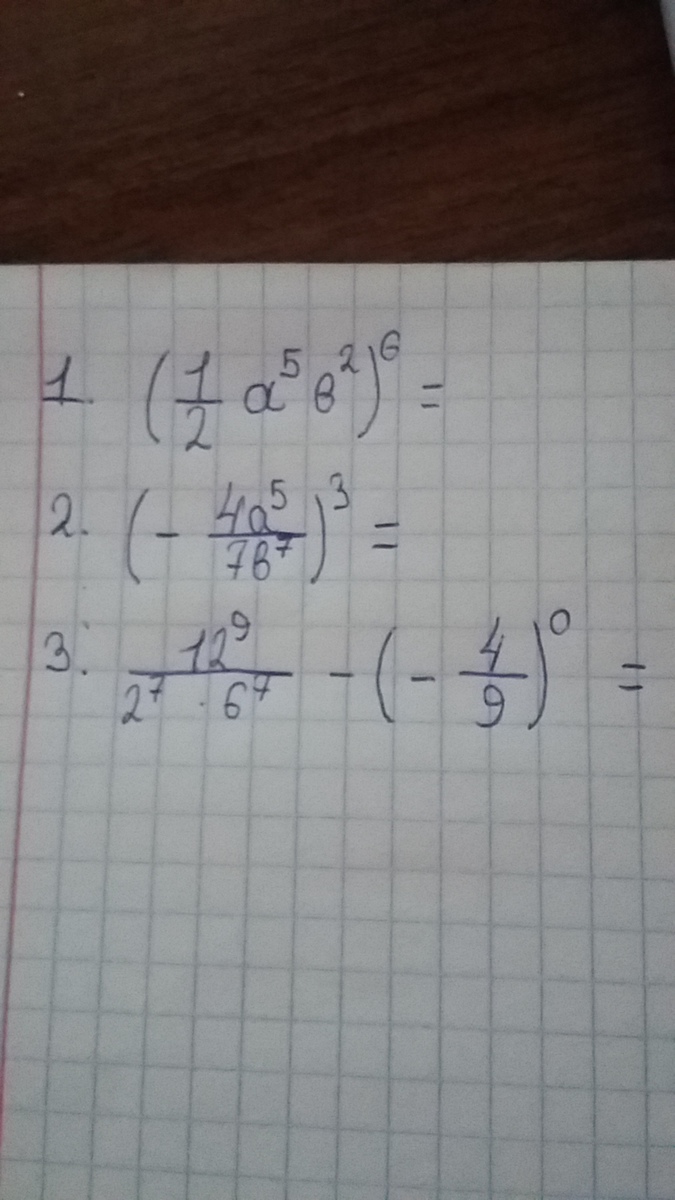 1. (1/2 a^5 b^2)^6 =
2. (- 4a^5/7b^7)^3 =
3. 12^9/2^7 · 6^7 - (- 4/9)^0 =